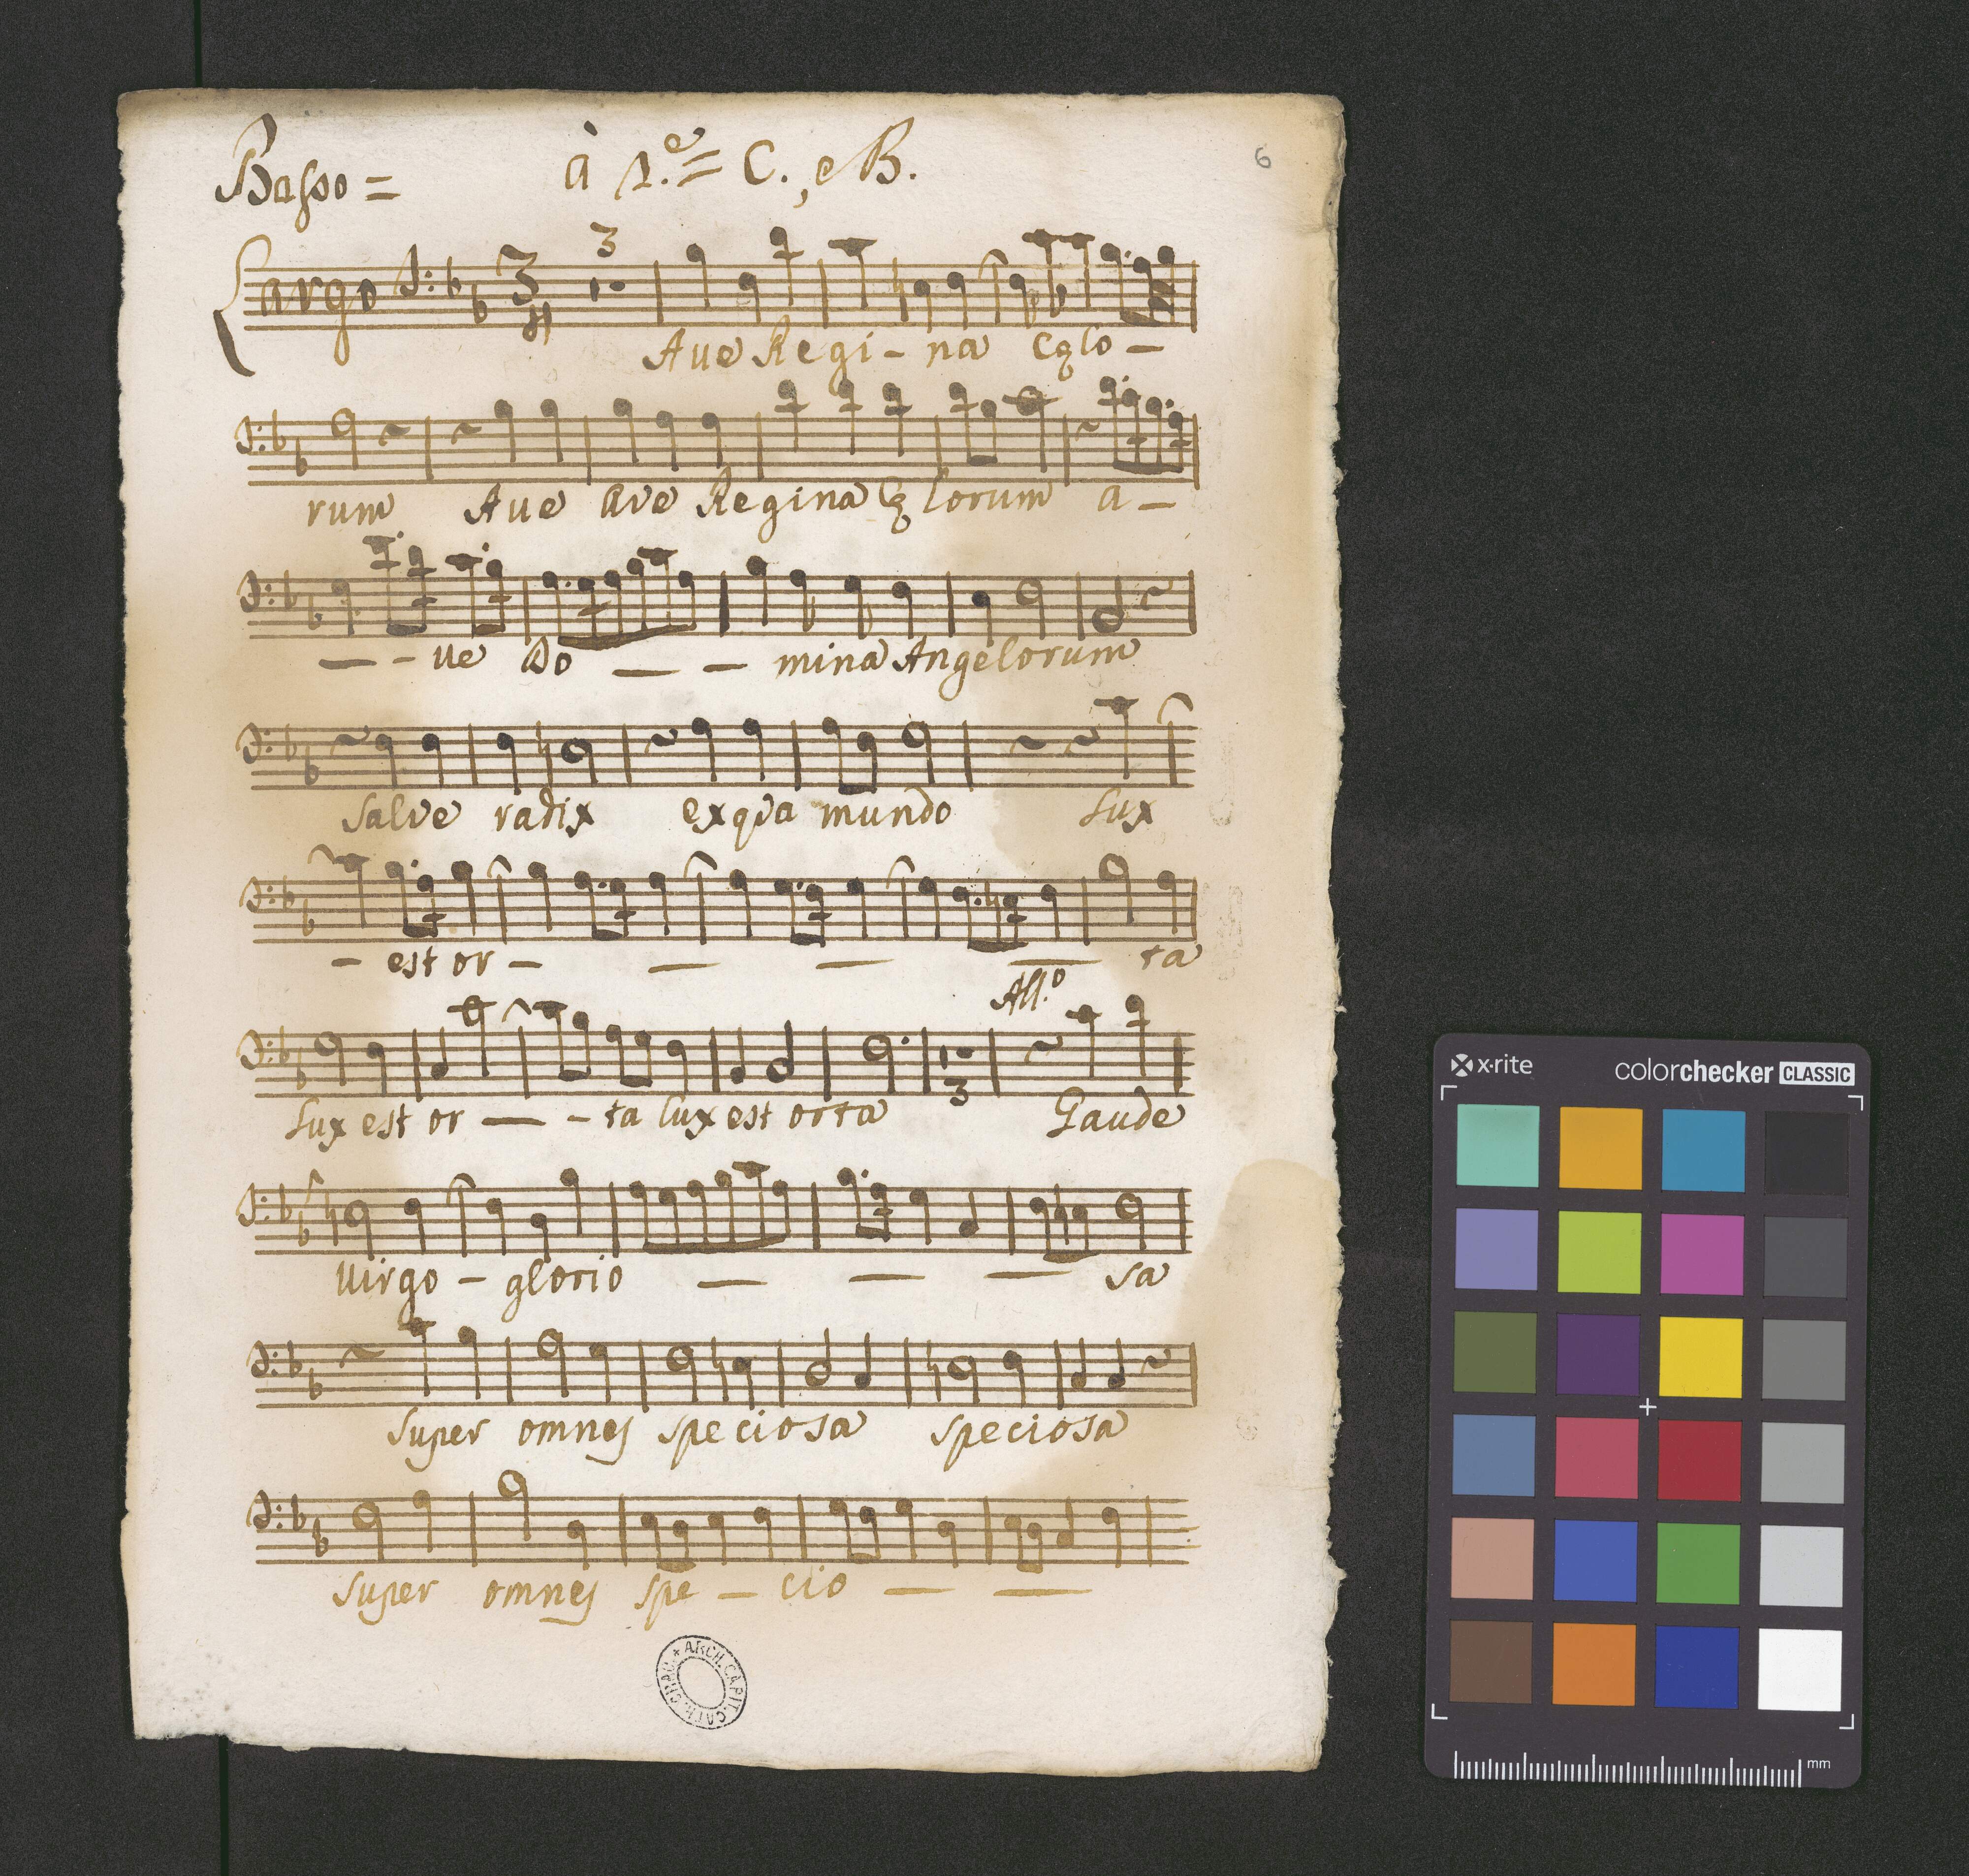 Basso = à 2.e = C., e B.
6
Largo 3 4 3
Aue Regi - na Cęlo -
rum Aue Ave Regina Cę lorum a -
- - ue Do - - mina Angelorum
Salve radix exqva mundo Lux
- est or - - - - ta
All.o
Lux est or - - ta lux est orta 3 Gaude
Uirgo - glorio - - - sa
super omnes speciosa speciosa
super omnes spe - cio - -
+ ARCH. CAPIT. CATH. CRAC.
x·rite colorchecker CLASSIC
mm